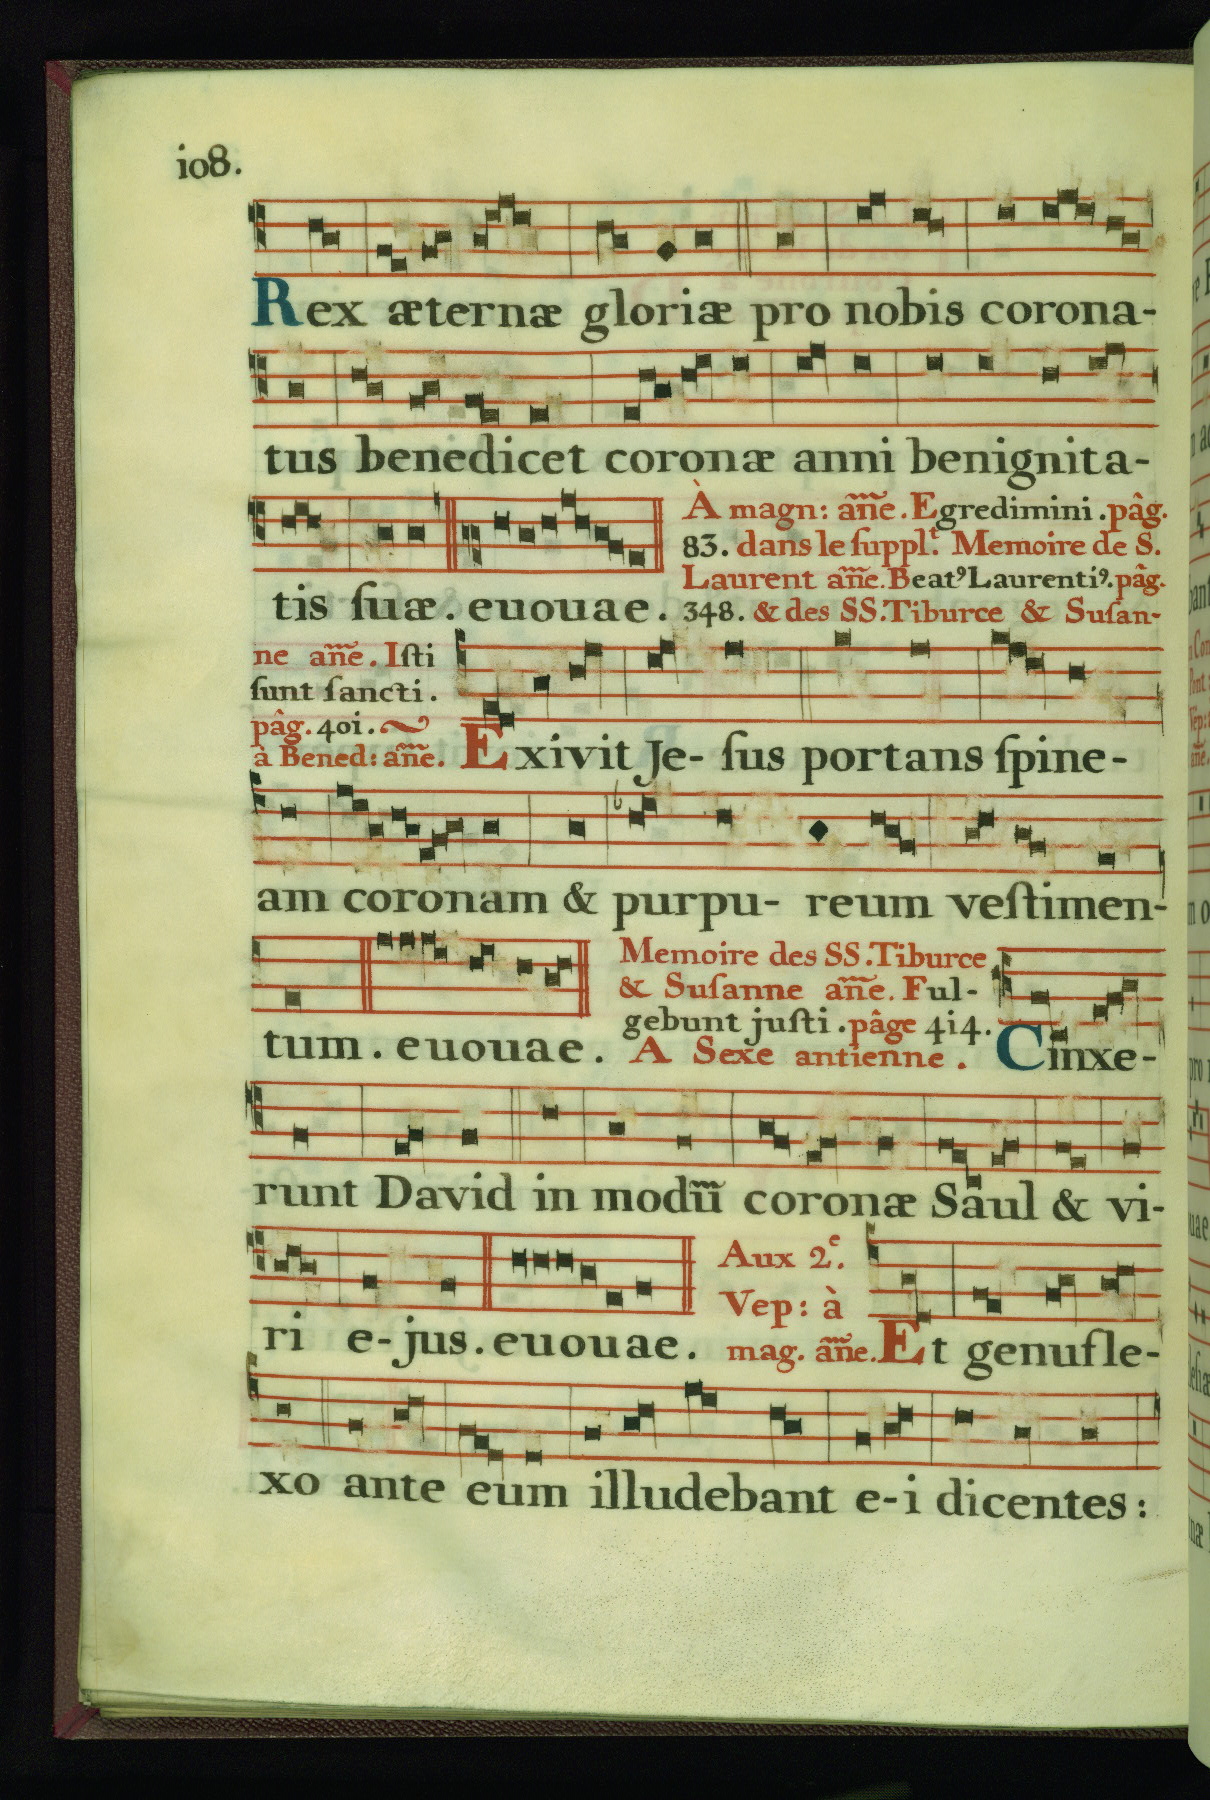 io8.
Rex æternæ gloriæ pro nobis corona-
tus benedicet coronæ anni benignita-
tis ſuæ. euouae.
À magn: añe. Egredimini. pâg.
83. dans le ſuppl.t Memoire de S.
Laurent añe. Beatꝰ Laurentiꝰ. pâg.
348. & des SS. Tiburce & Suſan-
ne añe. Iſti
ſunt ſancti.
pâg. 40i.
à Bened: añe. Exivit Je- ſus portans ſpine-
am coronam & purpu- reum veſtimen-
tum. euouae.
Memoire des SS. Tiburce
& Suſanne añe. Ful-
gebunt juſti. pâge 4i4.
A Sexe antienne. Cinxe-
runt David in modũ coronæ Saul & vi-
ri e-jus. euouae.
Aux 2.e
Vep: à
mag. añe. Et genufle-
xo ante eum illudebant e-i dicentes: